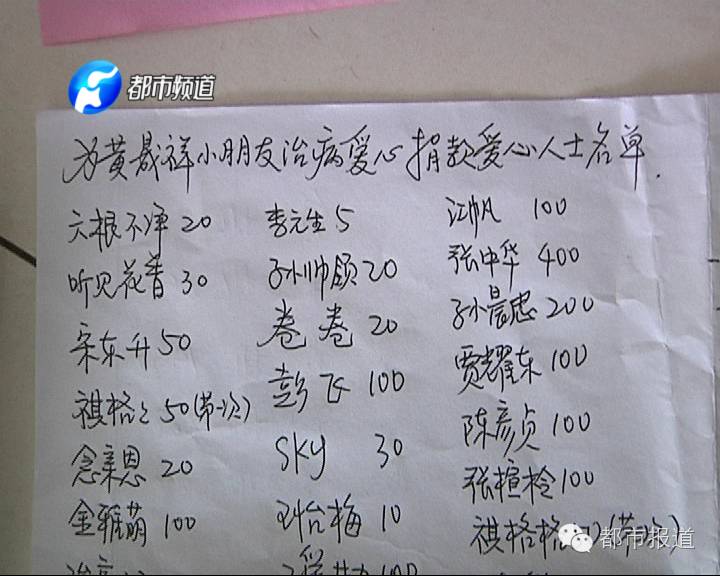 都市频道
为黄晟祥小朋友治病爱心捐款爱心人士名单.
六根不净 20
听见花香 30
宋东升 50
祺格 50(第一次)
念亲恩 20
金雅萌 100
李元生 5
孙帅领 20
卷卷 20
彭飞 100
SKY 30
怡梅 10
江帆 100
张中华 400
孙晨忠 200
贾耀东 100
陈彦贞 100
张楦柃 100
祺格格
都市报道